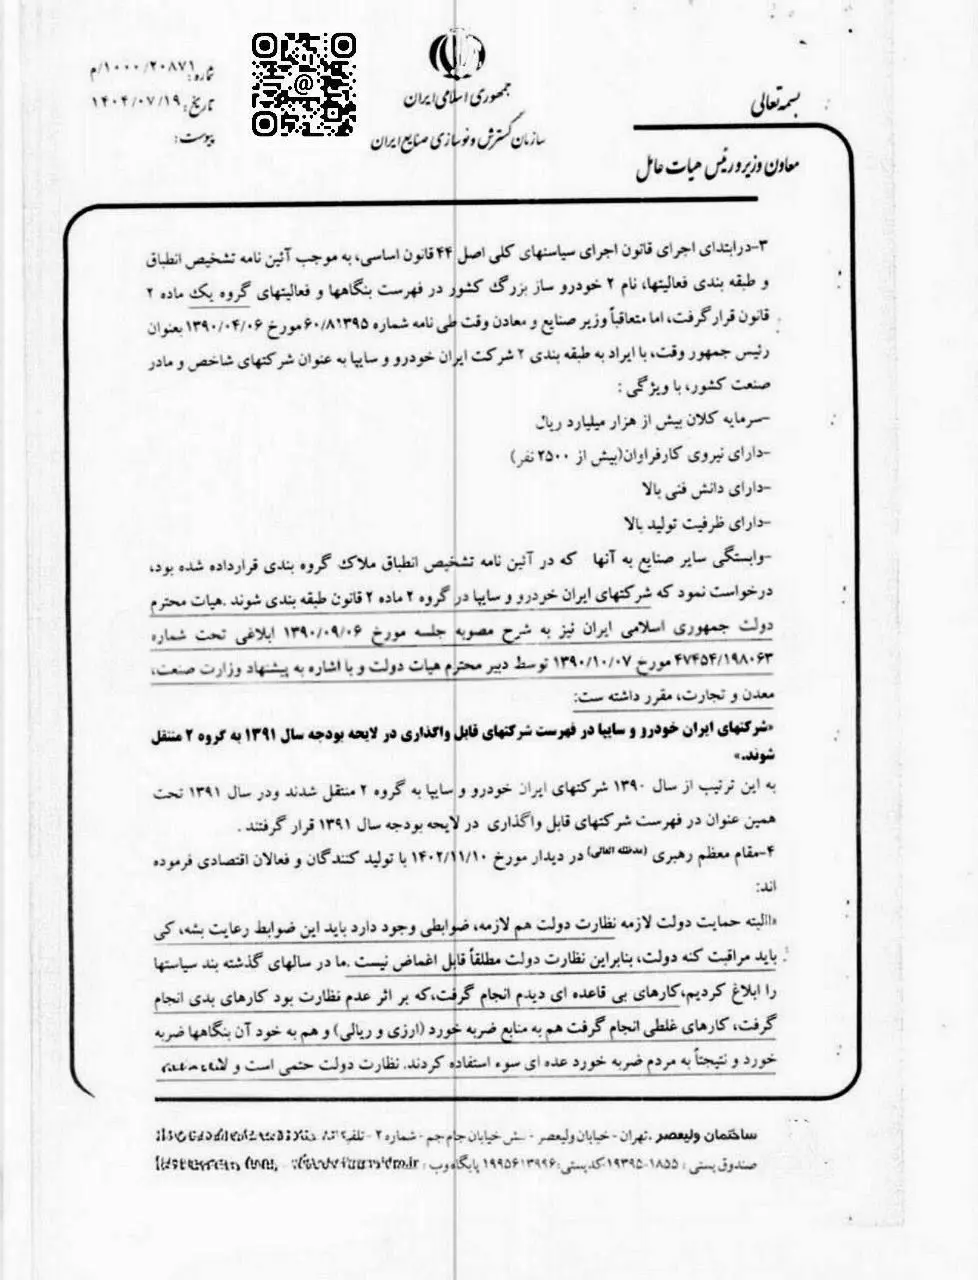 بسمه تعالی
معاون وزیر و رئیس هیات عامل
جمهوری اسلامی ایران
سازمان گسترش و نوسازی صنایع ایران
شماره: ۱۰۰۰/۲۰۸۷۱/م
تاریخ: ۱۴۰۴/۰۷/۱۹
پیوست:
۳-درابتدای اجرای قانون اجرای سیاستهای کلی اصل ۴۴ قانون اساسی، به موجب آئین نامه تشخیص انطباق
و طبقه بندی فعالیتها، نام ۲ خودرو ساز بزرگ کشور در فهرست بنگاهها و فعالیتهای گروه یک ماده ۲
قانون قرار گرفت، اما متعاقباً وزیر صنایع و معادن وقت طی نامه شماره ۶۰/۸۱۳۹۵ مورخ ۱۳۹۰/۰۴/۰۶ بعنوان
رئیس جمهور وقت، با ایراد به طبقه بندی ۲ شرکت ایران خودرو و سایپا به عنوان شرکتهای شاخص و مادر
صنعت کشور، با ویژگی :
-سرمایه کلان بیش از هزار میلیارد ریال
-دارای نیروی کارفراوان(بیش از ۲۵۰۰ نفر)
-دارای دانش فنی بالا
-دارای ظرفیت تولید بالا
-وابستگی سایر صنایع به آنها که در آئین نامه تشخیص انطباق ملاک گروه بندی قرارداده شده بود،
درخواست نمود که شرکتهای ایران خودرو و سایپا در گروه ۲ ماده ۲ قانون طبقه بندی شوند .هیات محترم
دولت جمهوری اسلامی ایران نیز به شرح مصوبه جلسه مورخ ۱۳۹۰/۰۹/۰۶ ابلاغی تحت شماره
۴۷۴۵۴/۱۹۸۰۶۳ مورخ ۱۳۹۰/۱۰/۰۷ توسط دبیر محترم هیات دولت و با اشاره به پیشنهاد وزارت صنعت،
معدن و تجارت، مقرر داشته ست:
«شرکتهای ایران خودرو و سایپا در فهرست شرکتهای قابل واگذاری در لایحه بودجه سال ۱۳۹۱ به گروه ۲ منتقل
شوند.»
به این ترتیب از سال ۱۳۹۰ شرکتهای ایران خودرو و سایپا به گروه ۲ منتقل شدند ودر سال ۱۳۹۱ تحت
همین عنوان در فهرست شرکتهای قابل واگذاری در لایحه بودجه سال ۱۳۹۱ قرار گرفتند .
۴-مقام معظم رهبری (مدظله العالی) در دیدار مورخ ۱۴۰۲/۱۱/۱۰ با تولید کنندگان و فعالان اقتصادی فرموده
اند:
«البته حمایت دولت لازمه نظارت دولت هم لازمه، ضوابطی وجود دارد باید این ضوابط رعایت بشه، کی
باید مراقبت کنه دولت، بنابراین نظارت دولت مطلقاً قابل اغماض نیست .ما در سالهای گذشته بند سیاستها
را ابلاغ کردیم،کارهای بی قاعده ای دیدم انجام گرفت،که بر اثر عدم نظارت بود کارهای بدی انجام
گرفت، کارهای غلطی انجام گرفت هم به منابع ضربه خورد (ارزی و ریالی) و هم به خود آن بنگاهها ضربه
خورد و نتیجتاً به مردم ضربه خورد عده ای سوء استفاده کردند. نظارت دولت حتمی است و
ساختمان ولیعصر .تهران - خیابان ولیعصر - نبش خیابان جام جم - شماره ۲ - تلفن:
صندوق پستی : ۱۸۵۵-۱۹۳۹۵ کد پستی: ۱۹۹۵۶۱۳۹۹۶ پایگاه وب :